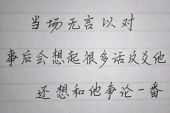 当场无言以对
事后会想起很多话反驳他
还想和他争论一番